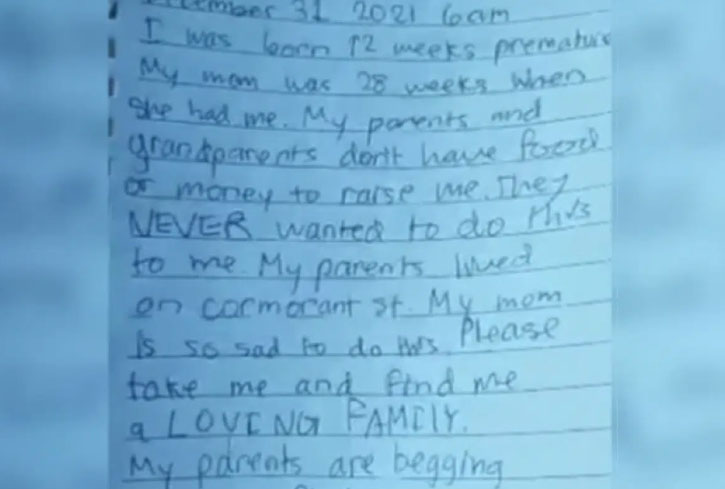 December 31 2021 6am
I was born 12 weeks premature
My mom was 28 weeks when
she had me. My parents and
grandparents don't have food
or money to raise me. They
NEVER wanted to do this
to me. My parents lived
on cormorant st. My mom
is so sad to do this. Please
take me and find me
a LOVING FAMILY.
My parents are begging